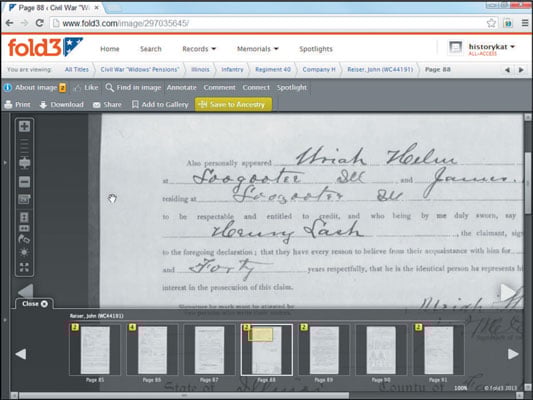 Page 88 › Civil War "Wi
www.fold3.com/image/297035645/
fold3
Home Search Records Memorials Spotlights
historykat
ALL-ACCESS
You are viewing: All Titles Civil War "Widows' Pensions" Illinois Infantry Regiment 40 Company H Reiser, John (WC44191) Page 88
About image 2 Like Find in image Annotate Comment Connect Spotlight
Print Download Share Add to Gallery Save to Ancestry
Also personally appeared Uriah Helm
at Loogootee Ill and James
residing at Loogootee Ill
to be respectable and entitled to credit, and who being by me duly sworn, say
Henry Lash , the claimant, sig
to the foregoing declaration; that they have every reason to believe from their acquaintance with him for
and Forty years respectfully, that he is the identical person he represents hi
interest in the prosecution of this claim.
Close
Reiser, John (WC44191)
Uriah
2 4 2 2 2
Page 85 Page 86 Page 87 Page 88 Page 89 Page 90 Page 91
State of County of
100% © fold3 2013